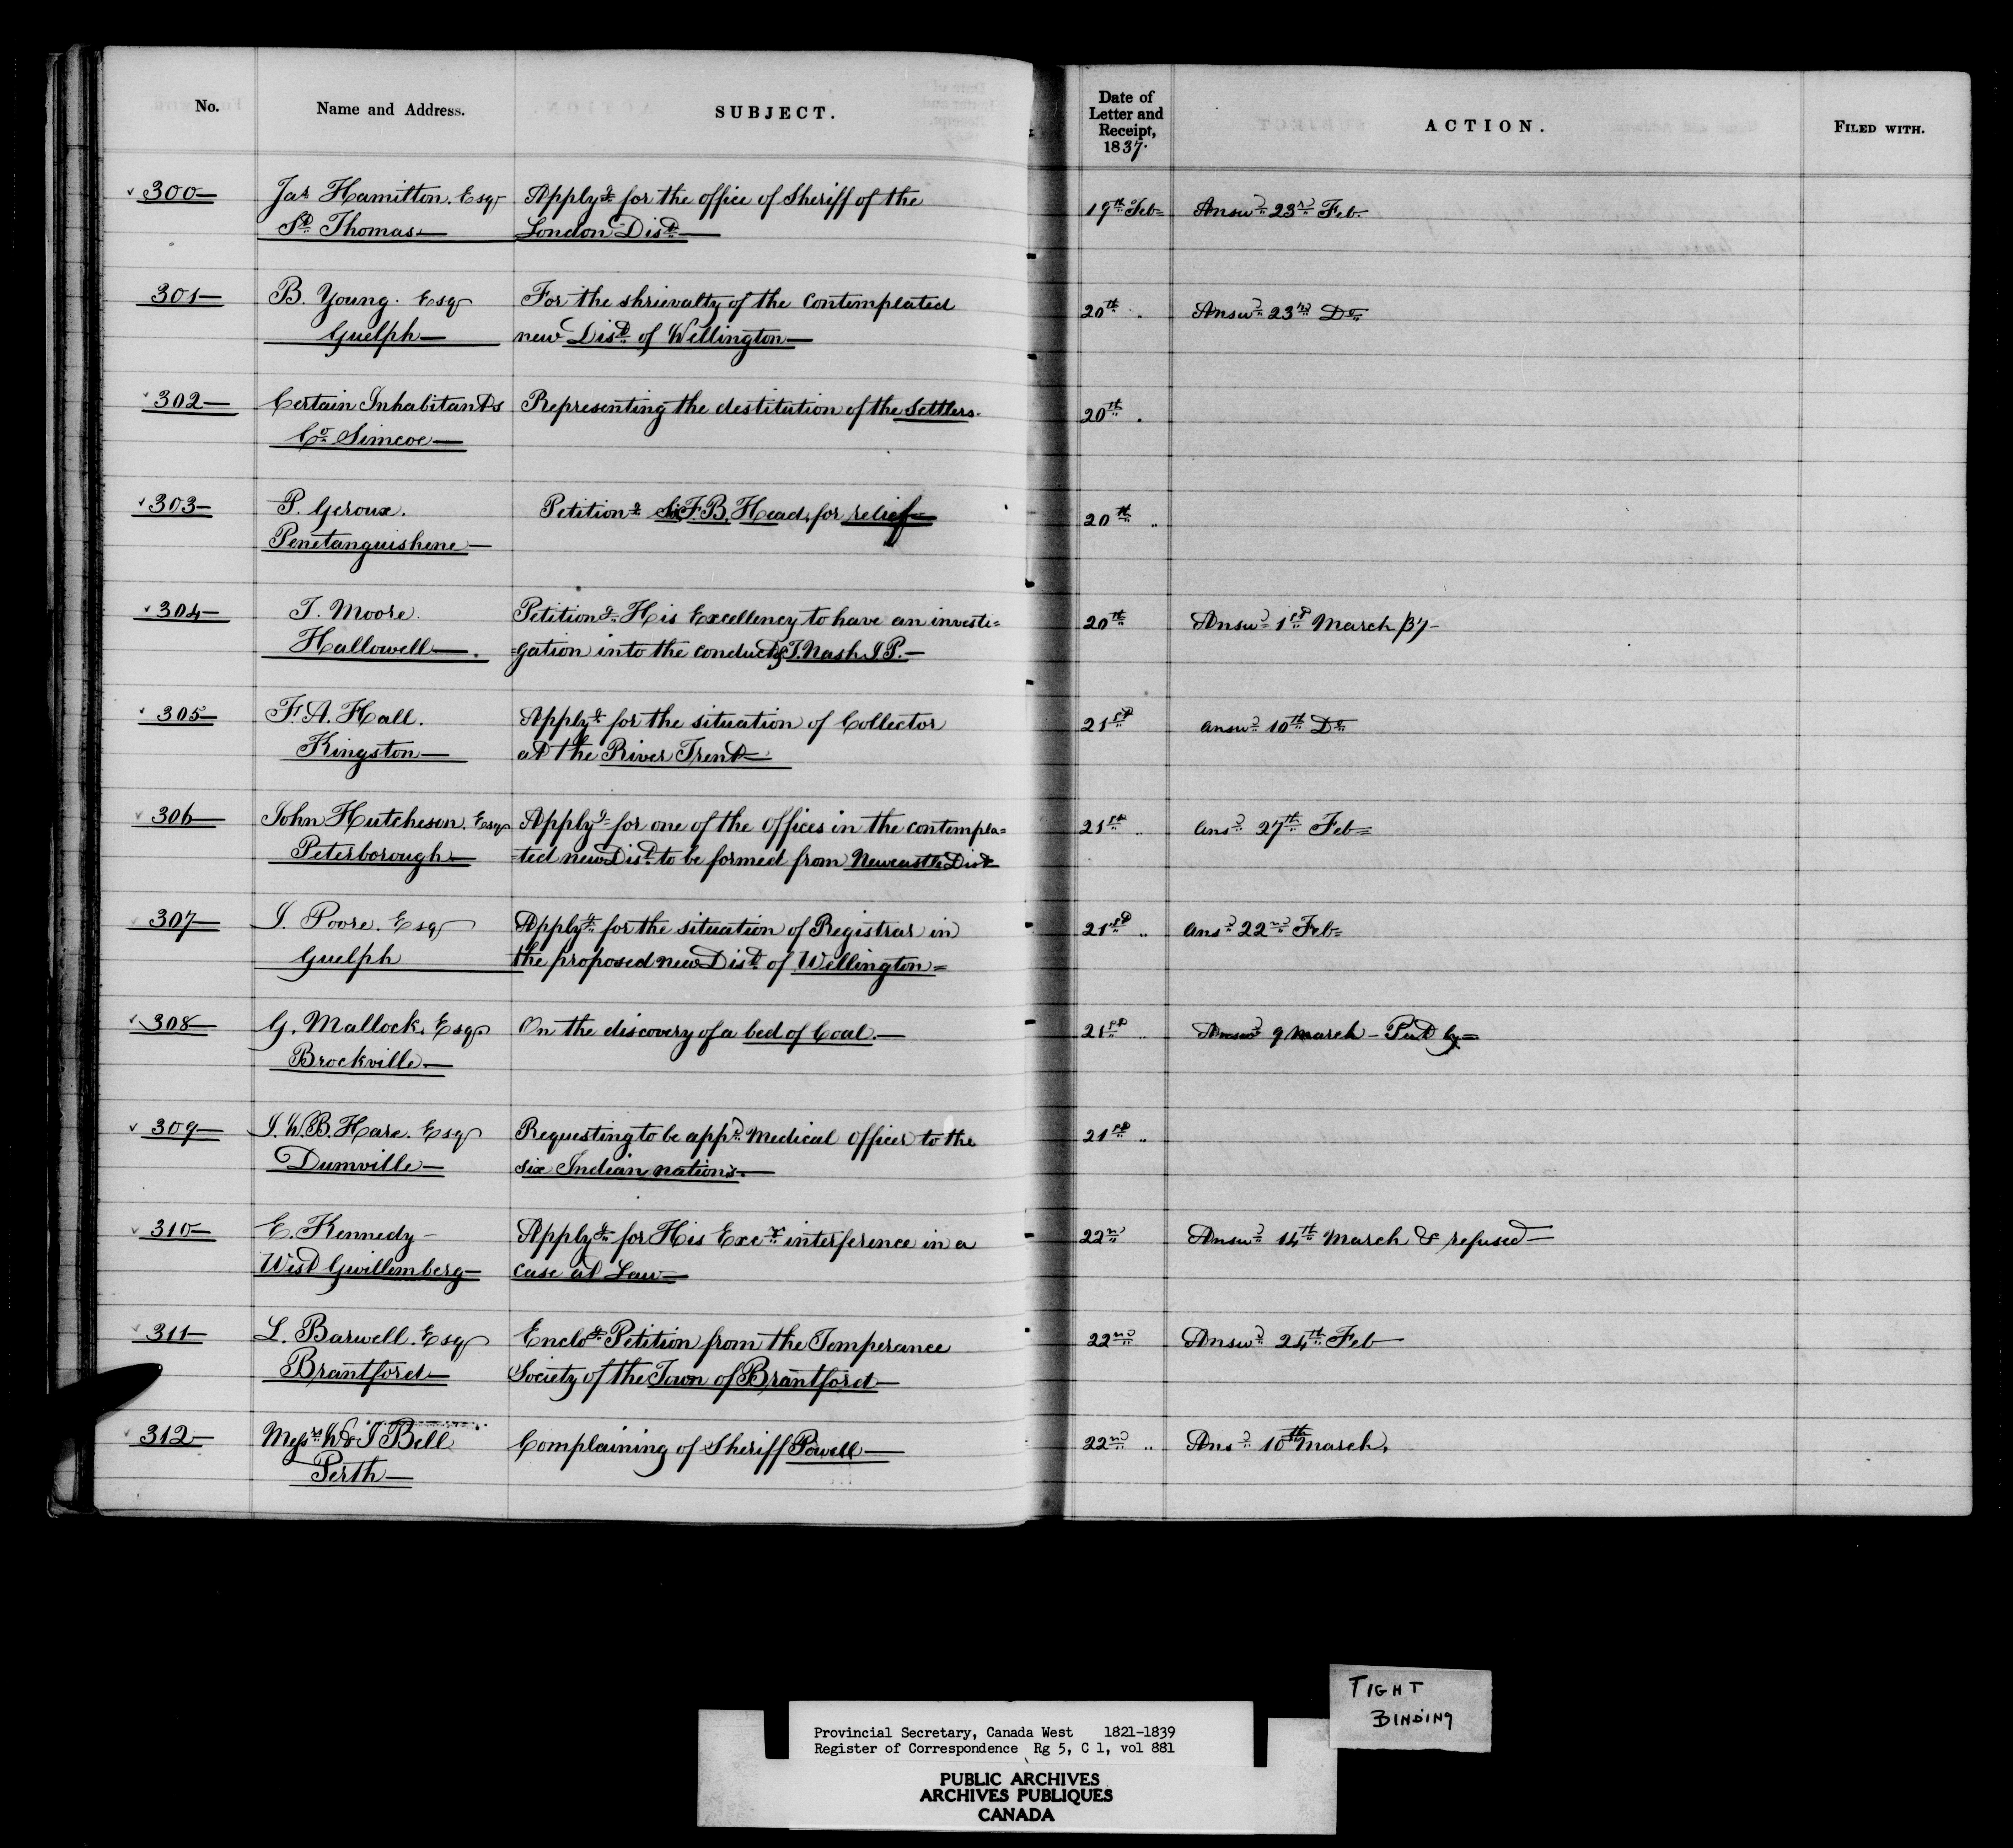 No. Name and Address. SUBJECT. Date of Letter and Receipt, 1837. ACTION. FILED WITH.
300 Jas Hamilton. Esqr Applyg for the office of Sheriff of the 19th Feb Answd 23rd Feb
St Thomas London Dist
301 B. Young. Esqr For the shrievalty of the contemplated 20th " Answd 23rd Do
Guelph new Dist of Wellington
302 Certain Inhabitants Representing the destitution of the Settlers. 20th "
Co Simcoe
303 P. Geroux. Petitiong Sir F. B. Head, for relief 20th "
Penetanguishene
304 T. Moore. Petitiong His Excellency to have an investi= 20th Answd 1st March /37
Hallowell =gation into the conduct of T. Nash J.P.
305 F. A. Hall. Applyg for the situation of Collector 21st answd 10th Do
Kingston at the River Trent
306 John Hutcheson. Esqr Applyg for one of the Offices in the contempla= 21st " ansd 27th Feb
Peterborough =ted new Dist to be formed from Newcastle Dist
307 J. Poore. Esqr Applyg for the situation of Registrar in 21st " ansd 22nd Feb
Guelph the proposed new Dist of Wellington
308 G. Mallock, Esqr On the discovery of a bed of Coal. 21st " Answd 9 March - Put by
Brockville
309 J. W. B. Hare. Esqr Requesting to be appd Medical Officer to the 21st "
Dumville six Indian nations.
310 E. Kennedy Applyg for His Excy interference in a 22nd Answd 14th March & refused
West Gwillemberg case at Law
311 L. Barwell. Esqr Enclog Petition from the Temperance 22nd Answd 24th Feb
Brantford Society of the Town of Brantford
312 Messrs W & J Bell Complaining of Sheriff Powell 22nd " Ansd 10th March.
Perth
TIGHT
BINDING
Provincial Secretary, Canada West 1821-1839
Register of Correspondence Rg 5, C 1, vol 881
PUBLIC ARCHIVES
ARCHIVES PUBLIQUES
CANADA